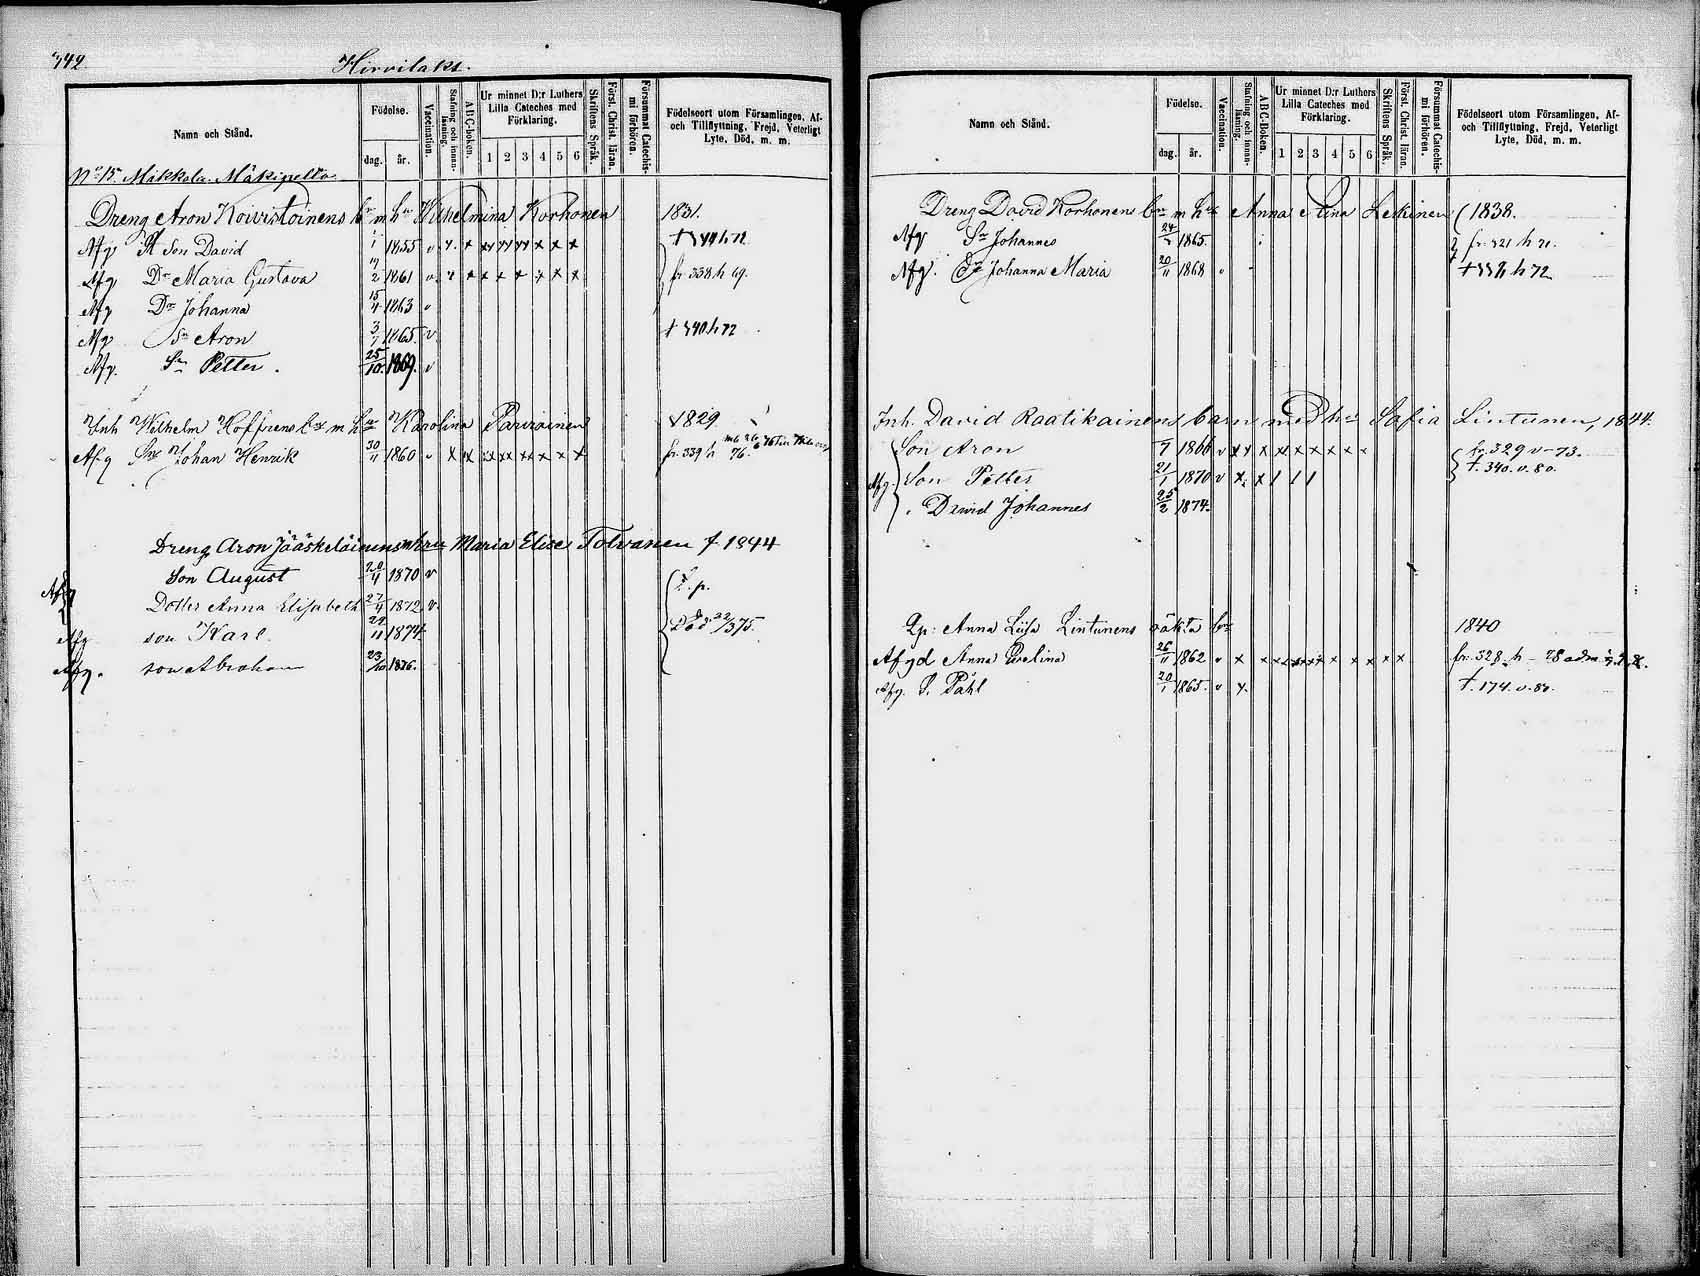 742
Hirvilaks.
Namn och Stånd.
Födelse.
dag. år.
Vaccination.
Stafning och innanläsning.
A B C-boken.
Ur minnet D:r Luthers Lilla Cateches med Förklaring.
1 2 3 4 5 6
Skriftens Språk.
Först. Christ. läran.
Försummat Catechismi förhören.
Födelseort utom Församlingen, Af- och Tillflyttning, Frejd, Veterligt Lyte, Död, m. m.
No 15. Mäkkola. Mäkipelto
Dreng Aron Koivistoinens br m hu Wilhelmina Korhonen 1831.
Afg Son David 1855 v
Afg Dr Maria Gustava 2 1861 fr. 338 h 69.
Afg Dr Johanna 15/4 1863 v
Afg Sn Aron 1865 v. † 340 h 72
Afg. Sn Petter. 25/10. 1869. v
Inh Wilhelm Hoffrens br m hu Karolina Parviainen 1829
Afg Son Johan Henrik 30/11 1860 v fr. 339 h 76.
Dreng Aron Jääskeläinens m hru Maria Elise Tolvanen f 1844
Son August 1870 v
Dotter Anna Elisabeth 27/4 1872. v.
Afg son Karl 1874 Död 22/3 75.
Afg. son Abraham 23/10 1876.
Namn och Stånd.
Födelse.
dag. år.
Vaccination.
Stafning och innanläsning.
A B C-boken.
Ur minnet D:r Luthers Lilla Cateches med Förklaring.
1 2 3 4 5 6
Skriftens Språk.
Först. Christ. läran.
Försummat Catechismi förhören.
Födelseort utom Församlingen, Af- och Tillflyttning, Frejd, Veterligt Lyte, Död, m. m.
Dreng David Korhonens br m hu Anna Stina Leskinen 1838.
Afg Sn Johannes 1865. fr. 321 h 71.
Afg. Dr Johanna Maria 20/11 1868 v
Inh. David Raatikainens barn med hu Sofia Lintunen, 1844.
Son Aron 1866 v fr. 329 v - 73.
Afg. Son Petter 21/1 1870 v t. 340. v. 80.
David Johannes 25/2 1874.
Qp: Anna Lisa Lintunens oäkta br 1840
Afg d Anna Evelina 26/11 1862 v fr. 328. h - 78
Afg. S. Påhl 20/1 1865. v t. 174. v.